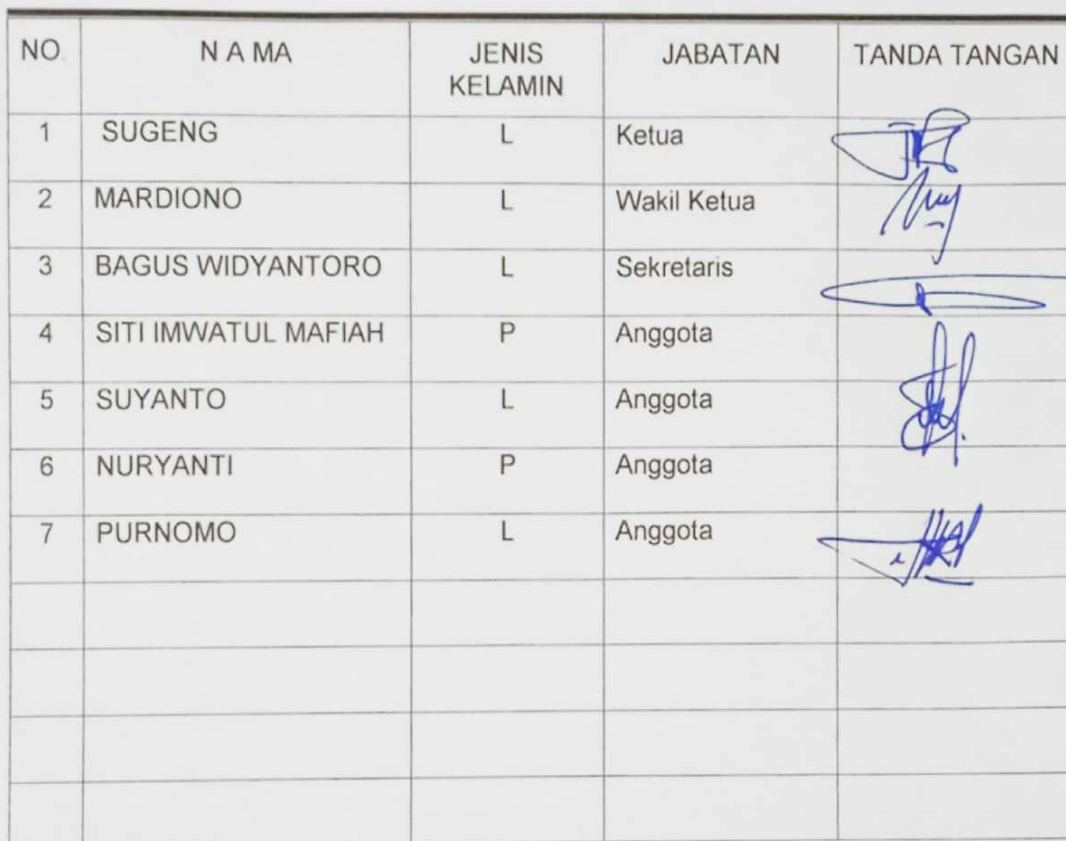 NO. N A MA JENIS KELAMIN JABATAN TANDA TANGAN
1 SUGENG L Ketua
2 MARDIONO L Wakil Ketua
3 BAGUS WIDYANTORO L Sekretaris
4 SITI IMWATUL MAFIAH P Anggota
5 SUYANTO L Anggota
6 NURYANTI P Anggota
7 PURNOMO L Anggota